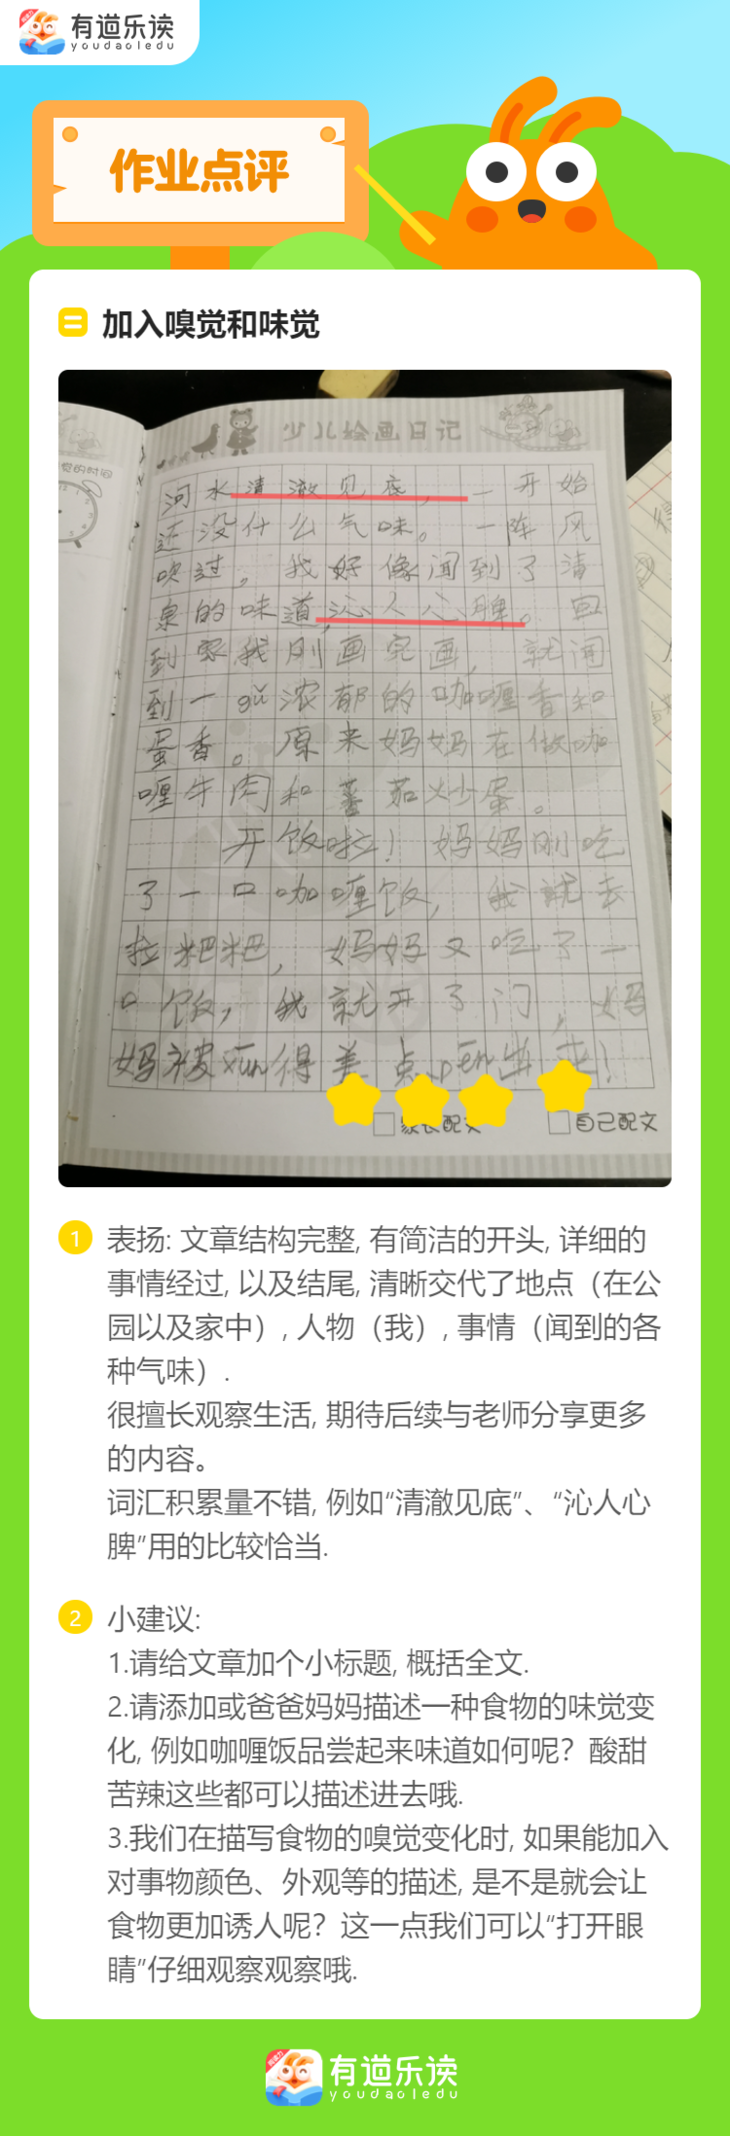 有道乐读
youdaoledu
作业点评
加入嗅觉和味觉
少儿绘画日记
河水清澈见底，一开始
还没什么气味。一阵风
吹过，我好像闻到了清
泉的味道，沁人心脾。回
到家我刚画完画，就闻
到一gǔ浓郁的咖喱香和
蛋香。原来妈妈在做咖
喱牛肉和蕃茄炒蛋。
开饭啦！妈妈刚吃
了一口咖喱饭，我就去
拉粑粑，妈妈又吃了一
口饭，我就开了门，妈
妈被xūn得差点pēn出来！
家长配文
自己配文
1
表扬: 文章结构完整, 有简洁的开头, 详细的
事情经过, 以及结尾, 清晰交代了地点（在公
园以及家中）, 人物（我）, 事情（闻到的各
种气味）.
很擅长观察生活, 期待后续与老师分享更多
的内容。
词汇积累量不错, 例如“清澈见底”、“沁人心
脾”用的比较恰当.
2
小建议:
1.请给文章加个小标题, 概括全文.
2.请添加或爸爸妈妈描述一种食物的味觉变
化, 例如咖喱饭品尝起来味道如何呢？酸甜
苦辣这些都可以描述进去哦.
3.我们在描写食物的嗅觉变化时, 如果能加入
对事物颜色、外观等的描述, 是不是就会让
食物更加诱人呢？这一点我们可以“打开眼
睛”仔细观察观察哦.
有道乐读
youdaoledu